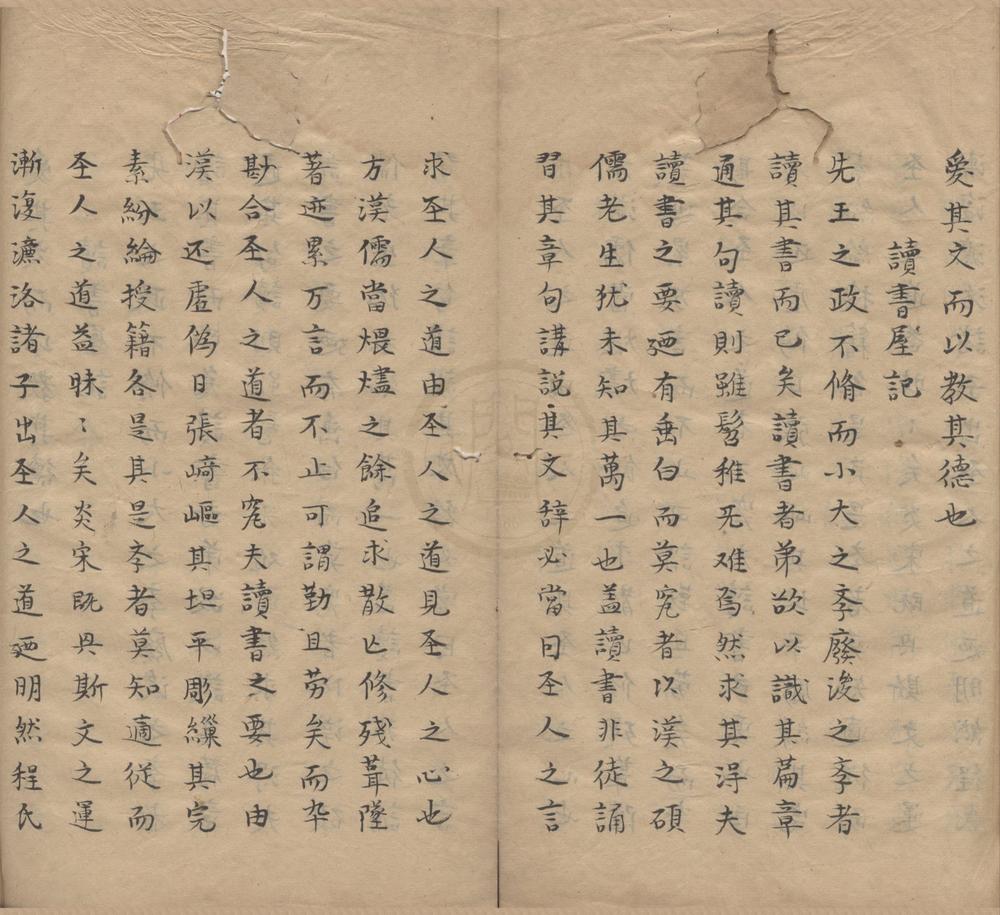 愛其文而以教其德也
讀書屋記
先王之政不脩而小大之斈廢浚之斈者
讀其書而已矣讀書者苐欲以識其萹章
通其句讀則雖髫稚旡难焉然求其淂夫
讀書之要廼有垂白而莫究者以漢之碩
儒老生犹未知其萬一也盖讀書非徒誦
習其章句講說其文辞必當曰圣人之言
求圣人之道由圣人之道見圣人之心也
方漢儒當煨燼之餘追求散亡修残葺墜
著迹累万言而不止可謂勤且劳矣而卒
勘合圣人之道者不究夫讀書之要也由
漢以还虗偽日張﨑嶇其坦平彫繅其完
素紛綸授籍各是其是斈者莫知適従而
圣人之道益昧〻矣炎宋既兴斯文之運
漸浚濂洛諸子出圣人之道廼明然程氏